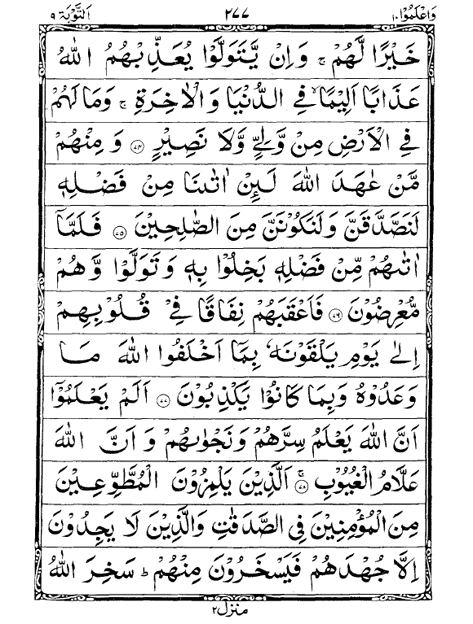 وَاعْلَمُوْٓا ١٠ ٢٧٧ اَلتَّوْبَة ٩
خَيْرًا لَّهُمْ ۚ وَاِنْ يَّتَوَلَّوْا يُعَذِّبْهُمُ اللّٰهُ
عَذَابًا اَلِيْمًا ۙ فِي الدُّنْيَا وَالْاٰخِرَةِ ۚ وَمَا لَهُمْ
فِي الْاَرْضِ مِنْ وَّلِيٍّ وَّلَا نَصِيْرٍ ۝۷۴ وَمِنْهُمْ
مَّنْ عٰهَدَ اللّٰهَ لَئِنْ اٰتٰىنَا مِنْ فَضْلِهٖ
لَنَصَّدَّقَنَّ وَلَنَكُوْنَنَّ مِنَ الصّٰلِحِيْنَ ۝۷۵ فَلَمَّآ
اٰتٰىهُمْ مِّنْ فَضْلِهٖ بَخِلُوْا بِهٖ وَتَوَلَّوْا وَّهُمْ
مُّعْرِضُوْنَ ۝۷۶ فَاَعْقَبَهُمْ نِفَاقًا فِيْ قُلُوْبِهِمْ
اِلٰى يَوْمِ يَلْقَوْنَهٗ بِمَآ اَخْلَفُوا اللّٰهَ مَا
وَعَدُوْهُ وَبِمَا كَانُوْا يَكْذِبُوْنَ ۝۷۷ اَلَمْ يَعْلَمُوْٓا
اَنَّ اللّٰهَ يَعْلَمُ سِرَّهُمْ وَنَجْوٰىهُمْ وَاَنَّ اللّٰهَ
عَلَّامُ الْغُيُوْبِ ۝۷۸ اَلَّذِيْنَ يَلْمِزُوْنَ الْمُطَّوِّعِيْنَ
مِنَ الْمُؤْمِنِيْنَ فِي الصَّدَقٰتِ وَالَّذِيْنَ لَا يَجِدُوْنَ
اِلَّا جُهْدَهُمْ فَيَسْخَرُوْنَ مِنْهُمْ ؕ سَخِرَ اللّٰهُ
منزل ٢